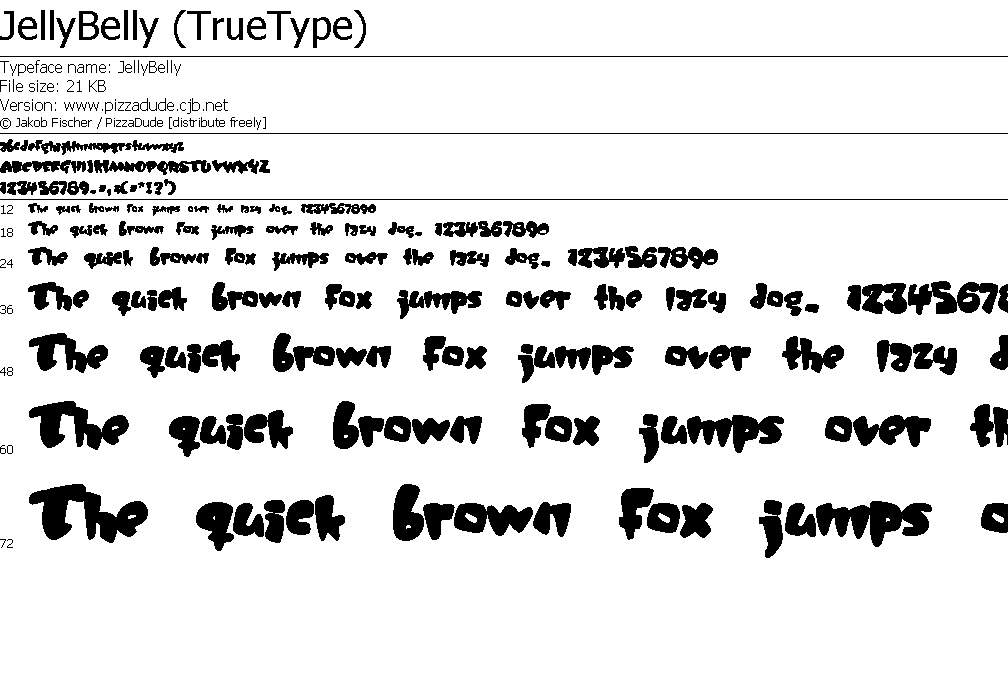 JellyBelly (TrueType)
Typeface name: JellyBelly
File size: 21 KB
Version: www.pizzadude.cjb.net
© Jakob Fischer / PizzaDude [distribute freely]
abcdefghijklmnopqrstuvwxyz
ABCDEFGHIJKLMNOPQRSTUVWXYZ
123456789.:,;(:*!?')
12 The quick brown fox jumps over the lazy dog. 1234567890
18 The quick brown fox jumps over the lazy dog. 1234567890
24 The quick brown fox jumps over the lazy dog. 1234567890
36 The quick brown fox jumps over the lazy dog. 12345678
48 The quick brown fox jumps over the lazy d
60 The quick brown fox jumps over th
72 The quick brown fox jumps o